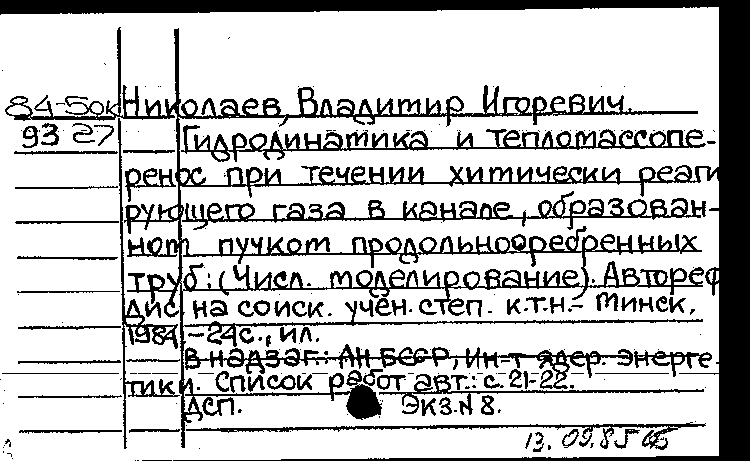 84-5ок Николаев, Владимир Игоревич.
93 27 Гидродинамика и тепломассопе-
ренос при течении химически реаги
рующего газа в канале, образован-
ном пучком продольнооребренных
труб: (Числ. моделирование). Автореф
дис. на соиск. учён. степ. к.т.н. - Минск,
1984. - 24с., ил.
В надзаг.: АН БССР, Ин-т ядер. энерге-
тики. Список работ авт.: с. 21-22.
ДСП. Экз. № 8.
13.09.85